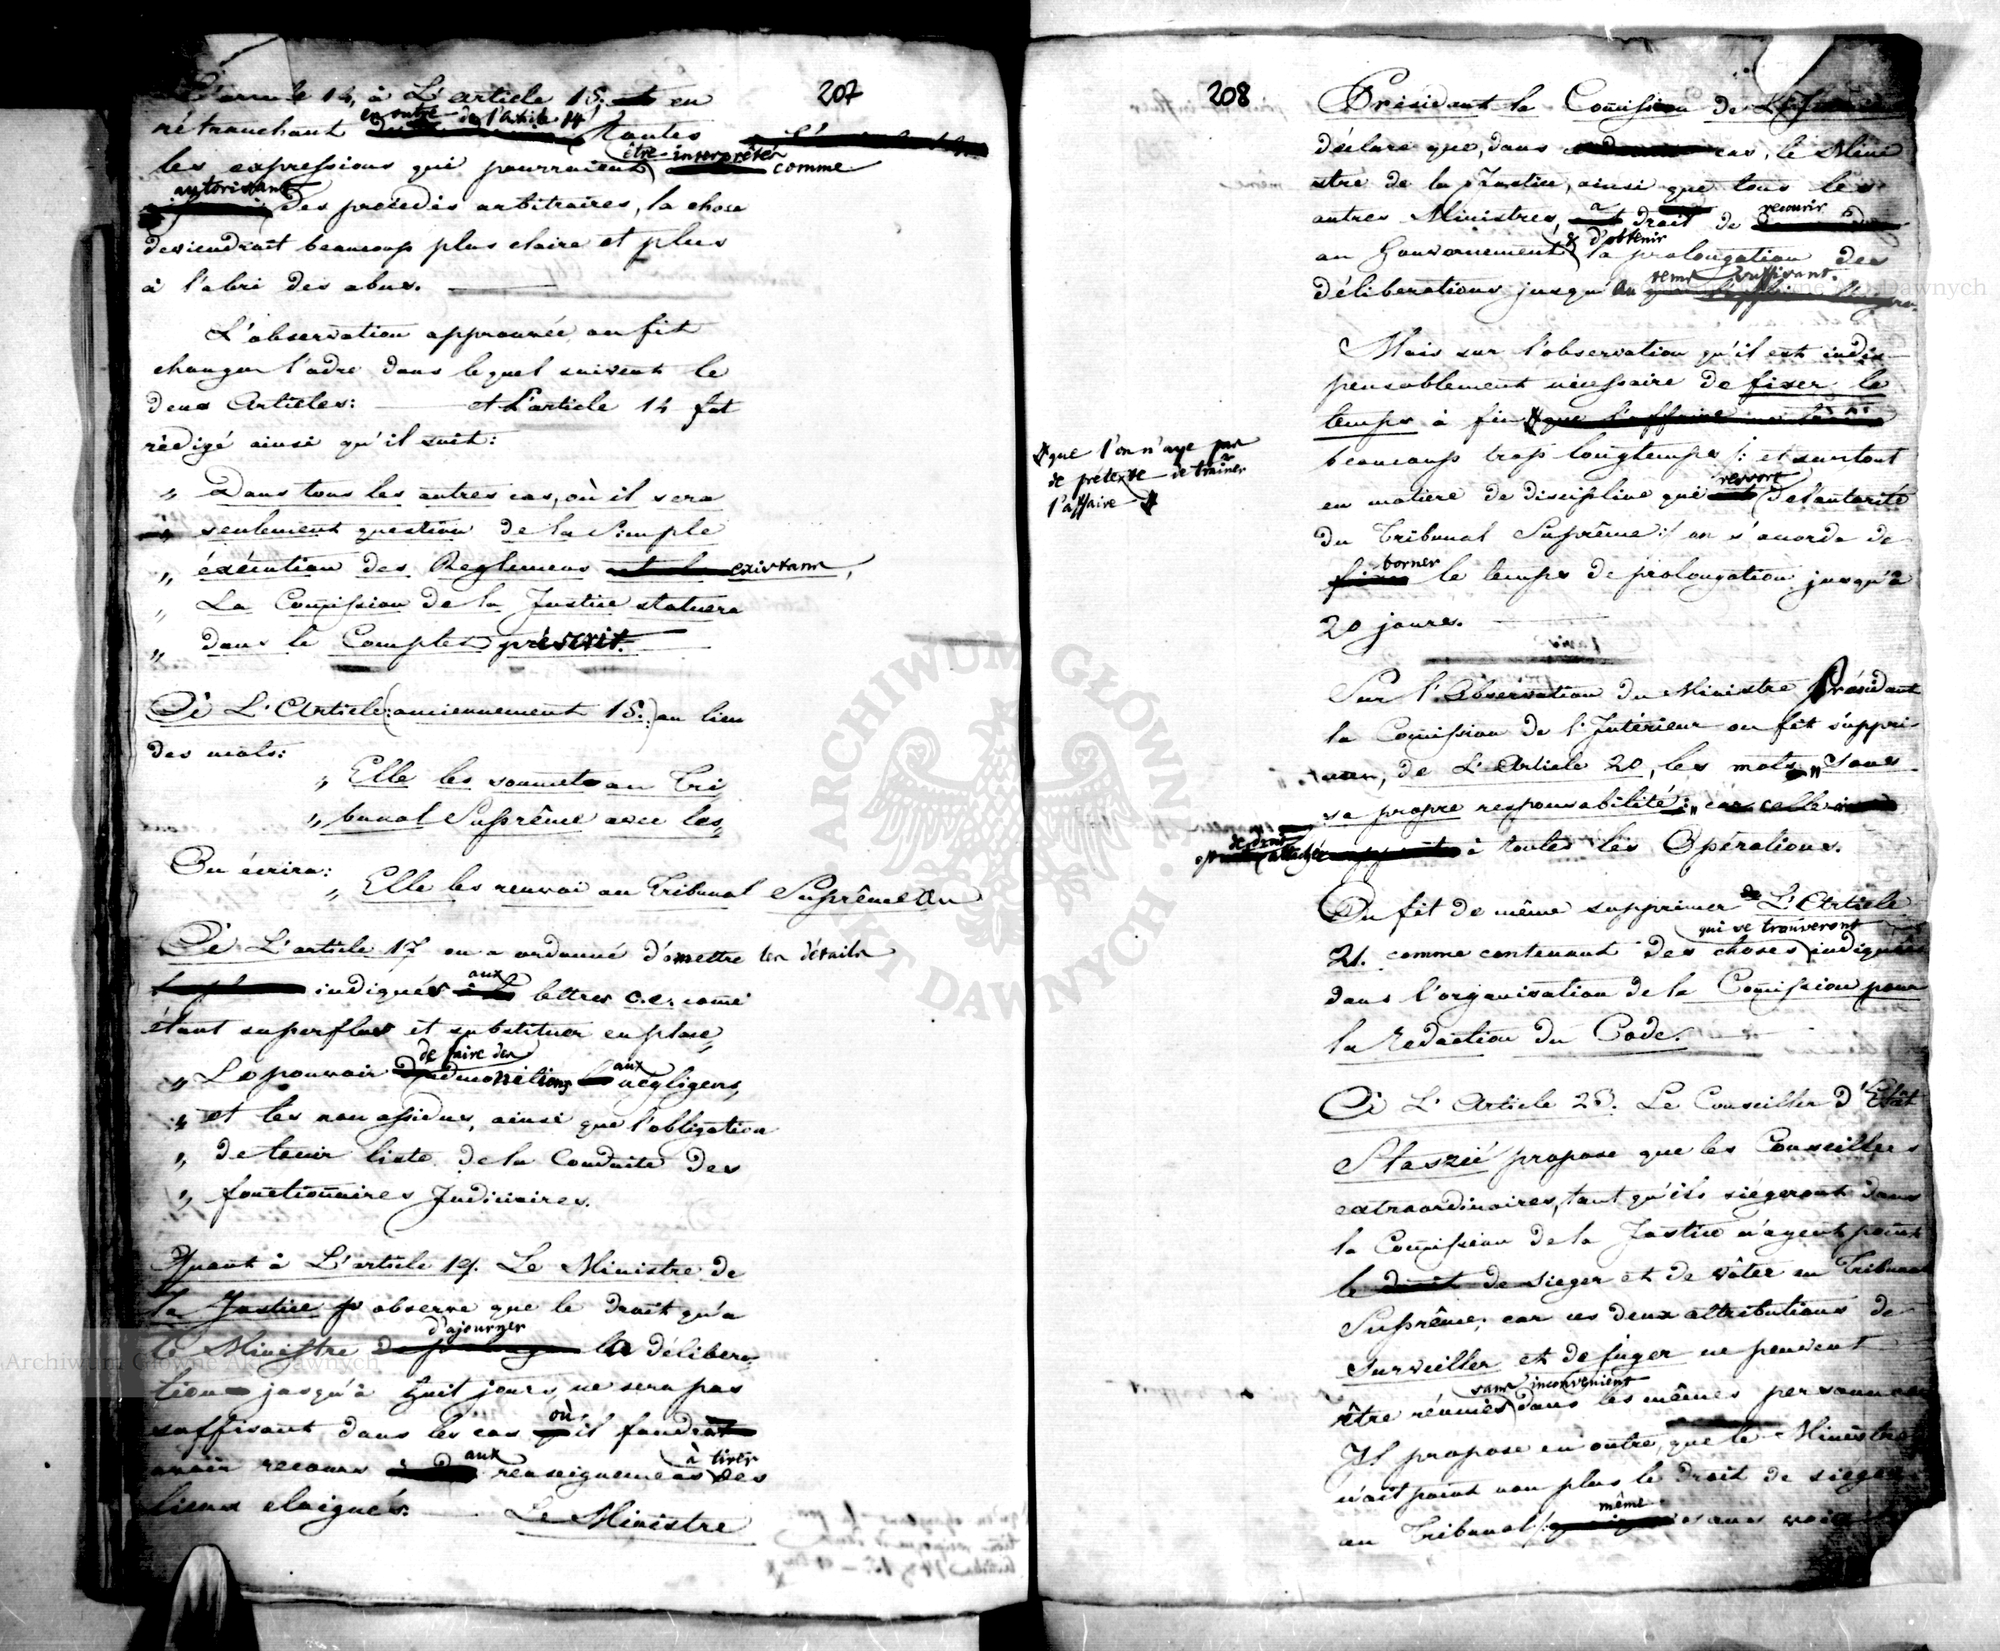 207
L'article 14, à L'article 15. en
rétranchant en outre de l'article 14 toutes
les expressions qui pourraient être interprêtés comme
autorisant des procédés arbitraires, la chose
deviendrait beaucoup plus claire et plus
à l'abri des abus.
L'observation approuvée on fit
changer l'odre dans lequel suivent le
deux Articles: et L'article 14 fut
rédigé ainsi qu'il suit:
„ Dans tous les autres cas, où il sera
„ seulement question de la simple
„ éxécution des Reglemens existans,
„ La Com̄ission de la Justice statuera
„ dans le Complet préscrit.
À L'Article (: anciennement 15:) au lieu
des mots:
„ Elle les soumet au Tri
„ bunal Suprême avec les„
On écrira:
„ Elle les renvoi au Tribunal Suprême au
À L'article 17 on a ordonné d'omettre les détails
indiqués aux lettres c. e. come
étant superflus et substituer en place„
„ Le pouvoir de faire des admonitions aux negligens,
„ et les non assidus, ainsi que l'obligation
„ de tenir liste de la Conduite des
„ fonctionnaires Judiciaires.
Quant à L'article 19. Le Ministre de
la Justice observe que le droit qu'a
le Ministre d'ajourner la délibera
tion jusqu'à huit jours, ne sera pas
suffisant dans les cas où il faudrait
avoir recours aux renseignemens à tirer des
lieux eloignés. Le Ministre
208
Président la Com̄ission de L'Intérieur
déclare que, dans ce cas, le Mini
stre de la Justice, ainsi que tous les
autres Ministres, a droit de recourir
au Gouvernement & d'obtenir la prolongation des
déliberations jusqu'au tems suffisant.
Mais sur l'observation qu'il est indis
pensablement nécessaire de fixer le
temps à fin
que l'on n'aye pas
de prétexte de trainer
l'affaire
beaucoup trop longtemps /: et surtout
en matiere de discipline qui ressort de l'autorité
du Tribunal Suprême :/ on s'acorde de
borner le temps de prolongation jusqu'à
20 jours.
Sur l'Observation du Ministre Président
la Com̄ission de l'Intérieur on fit suppri
mer, de L'Article 20, les mots „ sous
sa propre responsabilité:„ car celle
de droit attachée à toutes les Opérations.
On fit de même supprimer L'Article
21. comme contenant des choses qui se trouveront indiquées
dans l'organisation de la Com̄ission pour
la Redaction du Code.
À L'Article 23. Le Conseiller d'Etat
Staszic propose que les Conseillers
extraordinaires, tant qu'ils siégeront dans
la Com̄ission de la Justice n'ayent point
le droit de sieger et de vôter au Tribunal
Suprême, car ces deux attributions de
surveiller et de juger ne peuvent
être réunies sans inconvenient dans les mêmes personnes
Il propose en outre, que le Ministre
n'ait point non plus le droit de sieger
au Tribunal /: même sans voix